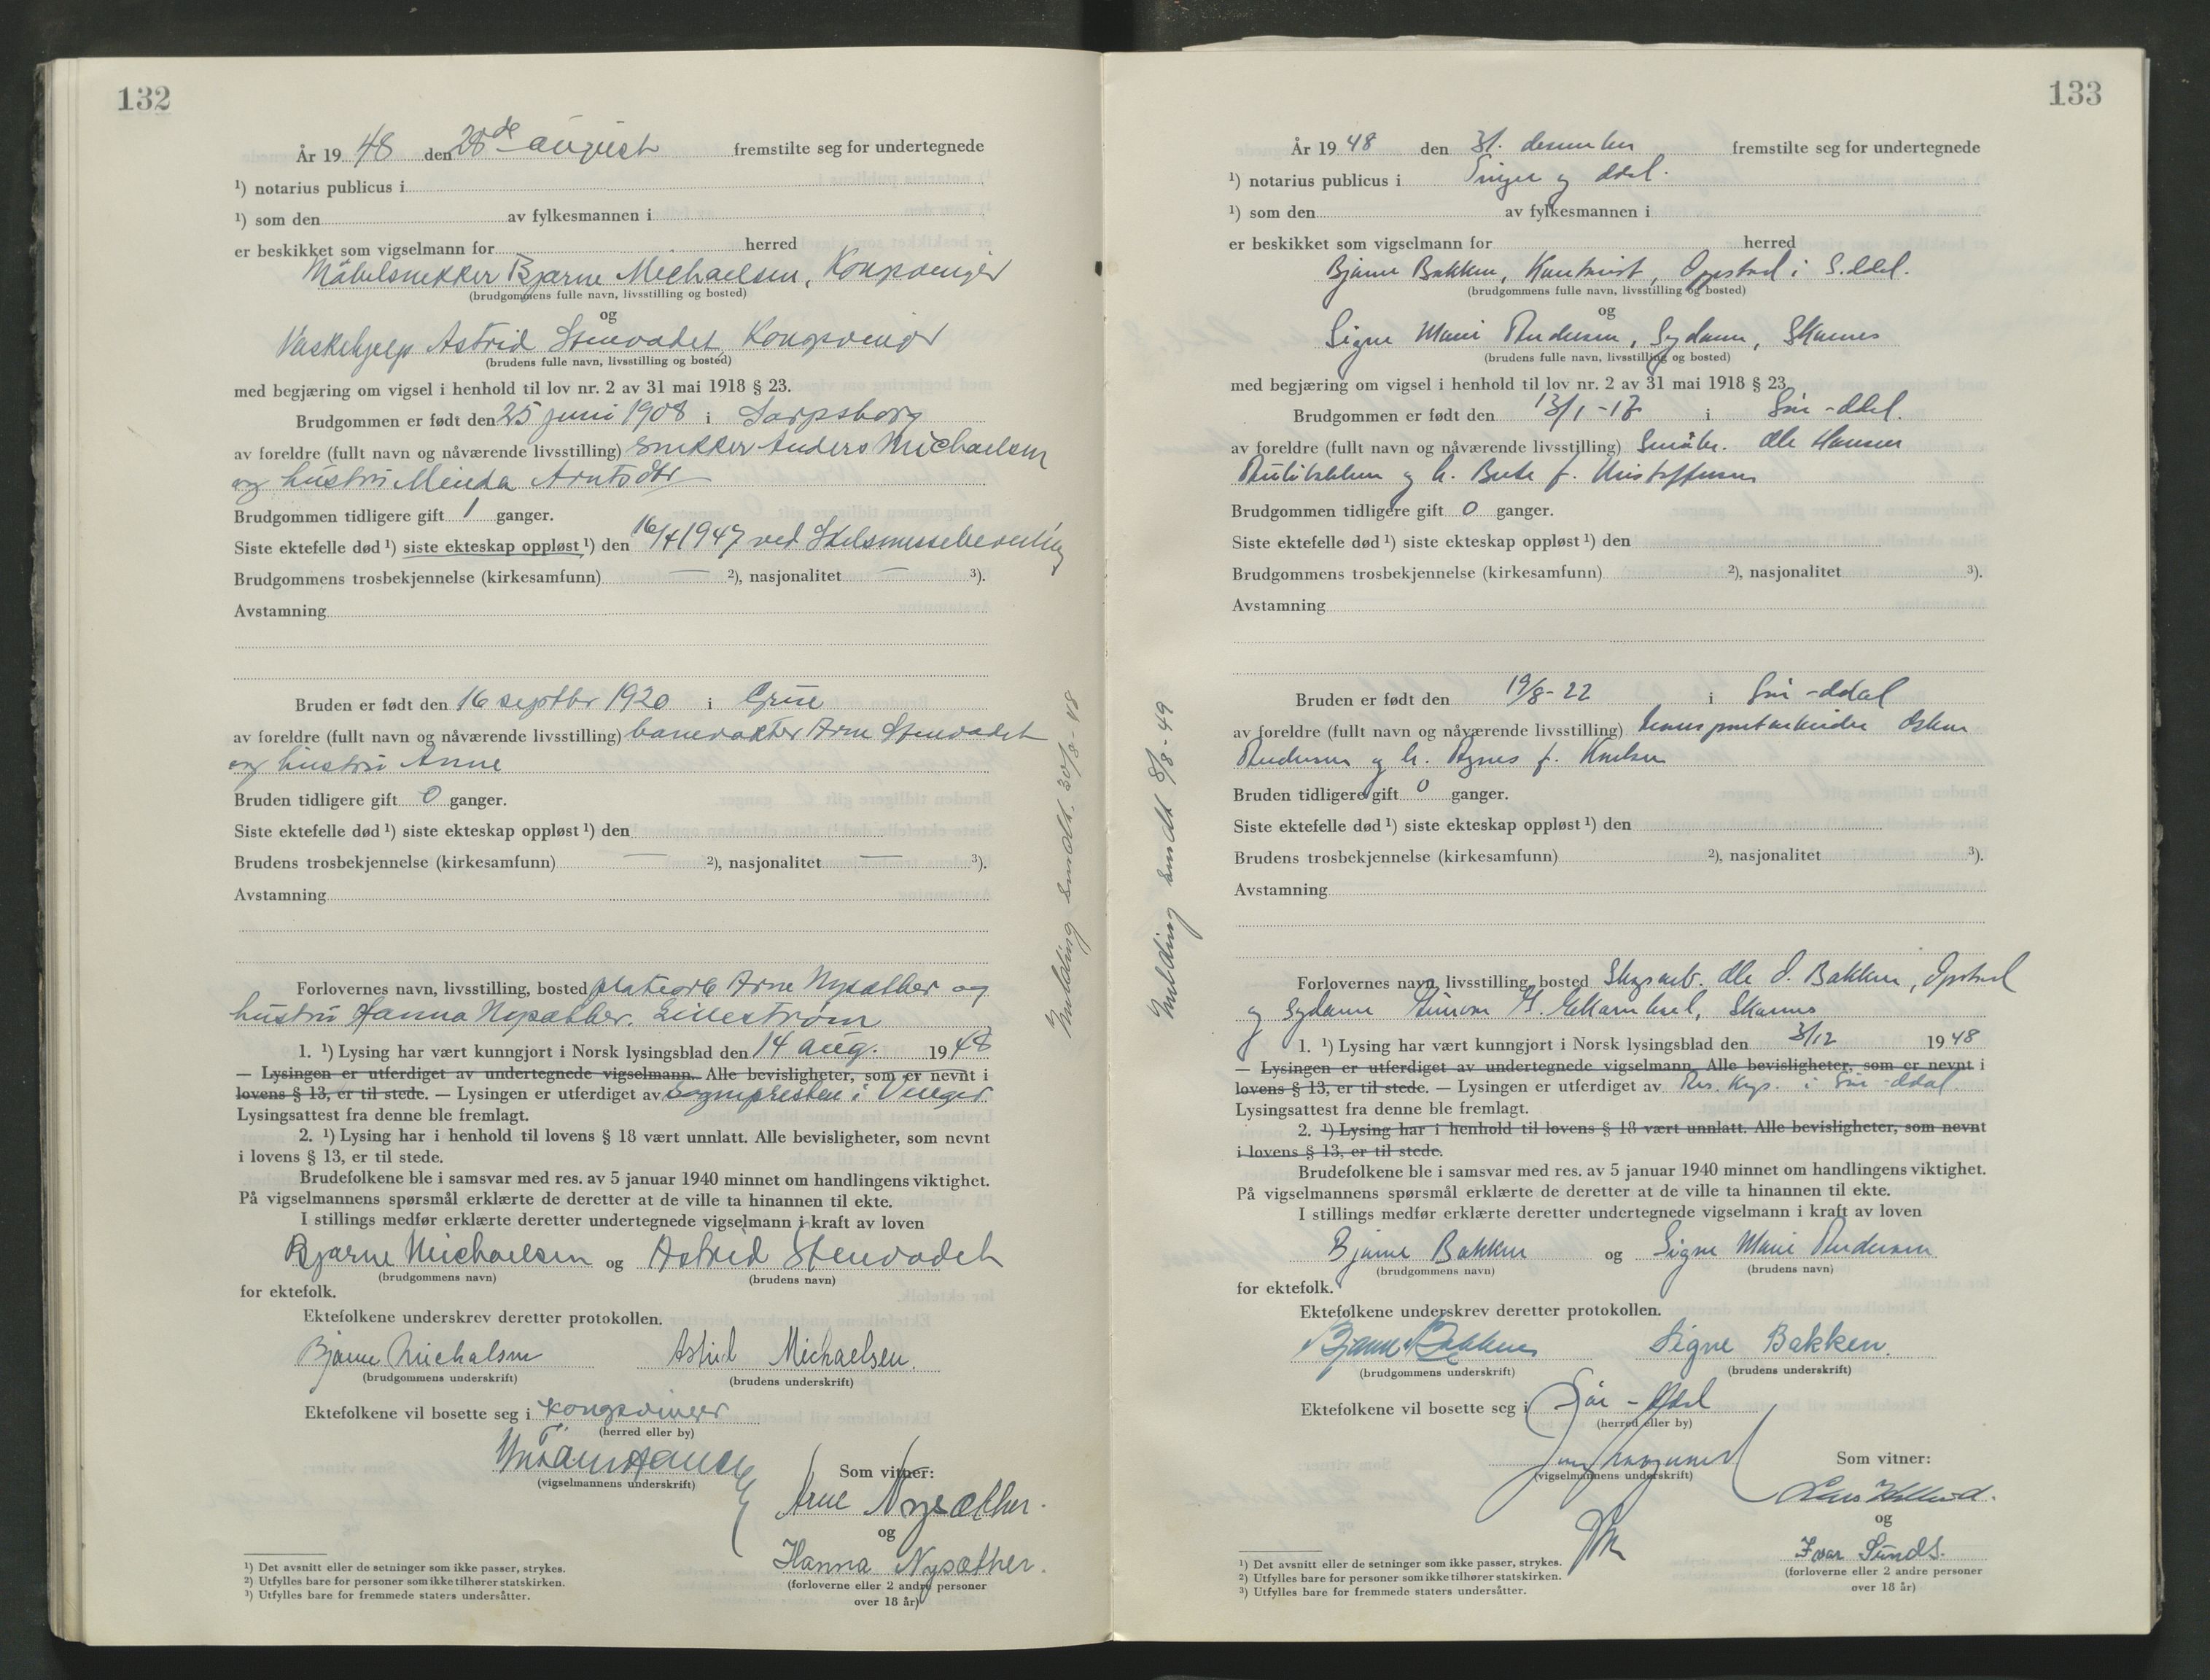 132
År 19 48 den 28de august fremstilte seg for undertegnede
1) notarius publicus i
1) som den av fylkesmannen i
er beskikket som vigselmann for herred
Møbelsnekker Bjarne Michaelsen, Kongsvinger
(brudgommens fulle navn, livsstilling og bosted)
og
Vaskehjelp Astrid Stenvadet Kongsvinger
(brudens fulle navn, livsstilling og bosted)
med begjæring om vigsel i henhold til lov nr. 2 av 31 mai 1918 § 23.
Brudgommen er født den 25 juni 1908 i Sarpsborg
av foreldre (fullt navn og nåværende livsstilling) snekker Anders Michaelsen
og hustru Minda Arntsdtr
Brudgommen tidligere gift 1 ganger.
Siste ektefelle død 1) siste ekteskap oppløst 1) den 16/4 1947 ved Skilsmissebevilling
Brudgommens trosbekjennelse (kirkesamfunn) — 2), nasjonalitet — 3).
Avstamning
Bruden er født den 16 septbr 1920 i Grue
av foreldre (fullt navn og nåværende livsstilling) banevakter Arne Stenvadet
og hustru Anne
Bruden tidligere gift 0 ganger.
Siste ektefelle død 1) siste ekteskap oppløst 1) den
Brudens trosbekjennelse (kirkesamfunn) — 2), nasjonalitet — 3).
Avstamning
Forlovernes navn, livsstilling, bosted Arne Nysæther og
hustru Hanna Nysæther. Lillestrøm
1. 1) Lysing har vært kunngjort i Norsk lysingsblad den 14 aug. 1948
— Lysingen er utferdiget av undertegnede vigselmann. Alle bevisligheter, som er nevnt i
lovens § 13, er til stede. — Lysingen er utferdiget av Sognepresten i Vinger
Lysingsattest fra denne ble fremlagt.
2. 1) Lysing har i henhold til lovens § 18 vært unnlatt. Alle bevisligheter, som nevnt
i lovens § 13, er til stede.
Brudefolkene ble i samsvar med res. av 5 januar 1940 minnet om handlingens viktighet.
På vigselmannens spørsmål erklærte de deretter at de ville ta hinannen til ekte.
I stillings medfør erklærte deretter undertegnede vigselmann i kraft av loven
Bjarne Michaelsen og Astrid Stenvadet
(brudgommens navn) (brudens navn)
for ektefolk.
Ektefolkene underskrev deretter protokollen.
Bjarne Michalsen Astrid Michaelsen.
(brudgommens underskrift) (brudens underskrift)
Ektefolkene vil bosette seg i Kongsvinger
(herred eller by)
(vigselmannens underskrift)
Som vitner:
Arne Nysæther.
og
Hanna Nysæther.
(forloverne eller 2 andre personer
over 18 år)
1) Det avsnitt eller de setninger som ikke passer, strykes.
2) Utfylles bare for personer som ikke tilhører statskirken.
3) Utfylles bare for fremmede staters undersåtter.
Melding sendt. 30/8-48
133
År 19 48 den 31. desember fremstilte seg for undertegnede
1) notarius publicus i Vinger og Odal.
1) som den av fylkesmannen i
er beskikket som vigselmann for herred
Bjarne Bakken, Kontorist, Opstad i S. Odal.
(brudgommens fulle navn, livsstilling og bosted)
og
Signe Marie Andersen, Sydame, Skarnes
(brudens fulle navn, livsstilling og bosted)
med begjæring om vigsel i henhold til lov nr. 2 av 31 mai 1918 § 23
Brudgommen er født den 13/1-18 i Sør-Odal.
av foreldre (fullt navn og nåværende livsstilling) Småbr. Ole Hansen
og h. f. Kristoffersen
Brudgommen tidligere gift 0 ganger.
Siste ektefelle død 1) siste ekteskap oppløst 1) den
Brudgommens trosbekjennelse (kirkesamfunn) 2), nasjonalitet 3).
Avstamning
Bruden er født den 19/8-22 i Sør-Odal
av foreldre (fullt navn og nåværende livsstilling) transportarbeider Oskar
Andersen og h. Agnes f. Knutsen
Bruden tidligere gift 0 ganger.
Siste ektefelle død 1) siste ekteskap oppløst 1) den
Brudens trosbekjennelse (kirkesamfunn) 2), nasjonalitet 3).
Avstamning
Forlovernes navn, livsstilling, bosted Skogsarb. Ole O. Bakken, Opstad
og Sydame Skarnes
1. 1) Lysing har vært kunngjort i Norsk lysingsblad den 3/12 1948
— Lysingen er utferdiget av undertegnede vigselmann. Alle bevisligheter, som er nevnt i
lovens § 13, er til stede. — Lysingen er utferdiget av Res. Kap. i Sør-Odal
Lysingsattest fra denne ble fremlagt.
2. 1) Lysing har i henhold til lovens § 18 vært unnlatt. Alle bevisligheter, som nevnt
i lovens § 13, er til stede.
Brudefolkene ble i samsvar med res. av 5 januar 1940 minnet om handlingens viktighet.
På vigselmannens spørsmål erklærte de deretter at de ville ta hinannen til ekte.
I stillings medfør erklærte deretter undertegnede vigselmann i kraft av loven
Bjarne Bakken og Signe Marie Andersen
(brudgommens navn) (brudens navn)
for ektefolk.
Ektefolkene underskrev deretter protokollen.
Bjarne Bakken Signe Bakken.
(brudgommens underskrift) (brudens underskrift)
Ektefolkene vil bosette seg i Sør-Odal
(herred eller by)
(vigselmannens underskrift)
Som vitner:
og
Ivar Sund
(forloverne eller 2 andre personer
over 18 år)
1) Det avsnitt eller de setninger som ikke passer, strykes.
2) Utfylles bare for personer som ikke tilhører statskirken.
3) Utfylles bare for fremmede staters undersåtter.
Melding sendt 8/8-49